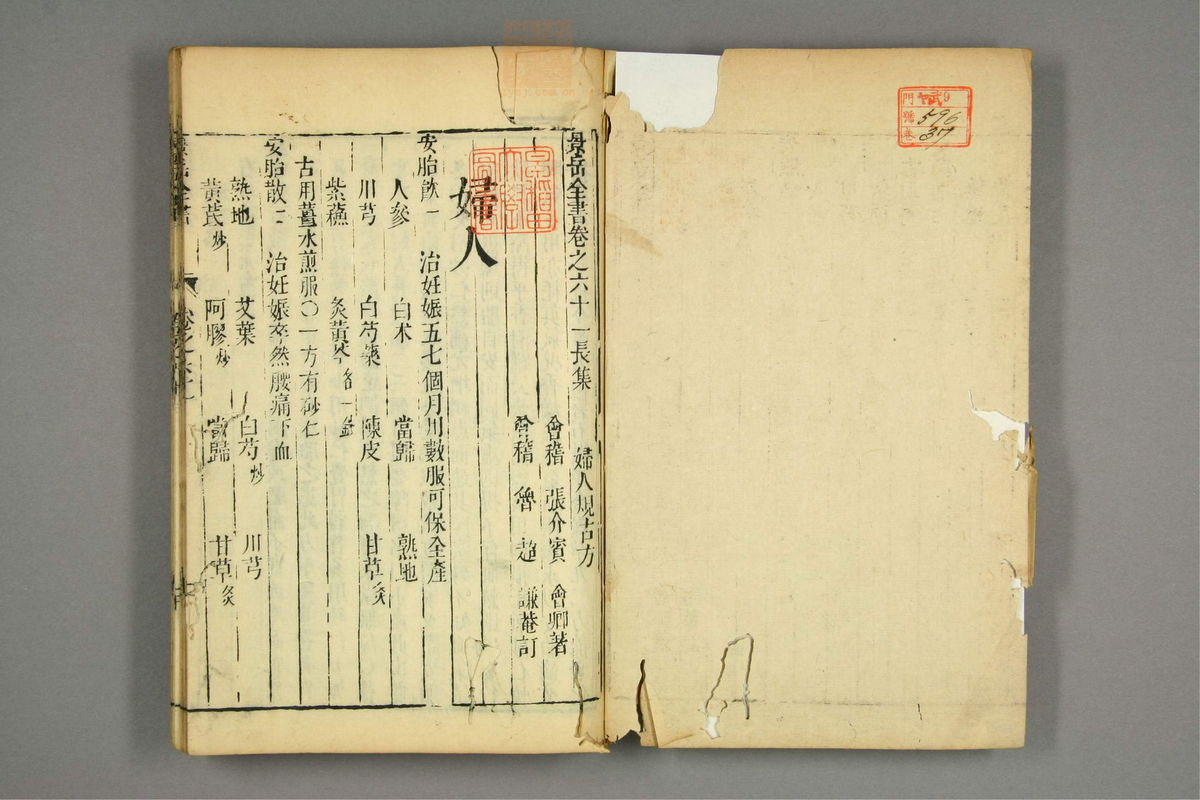 門 9
號 596
卷 37
景岳全書卷之六十一長集 婦人規古方
會稽 張介賓 會卿著
會稽 魯 超 謙菴訂
婦人
安胎飲一 治妊娠五七個月用數服可保全產
人參 白术 當歸 熟地
川芎 白芍藥 陳皮 甘草炙
紫蘇 炙黃芩各一錢
古用薑水煎服〇一方有砂仁
安胎散二 治妊娠卒然腰痛下血
熟地 艾葉 白芍炒 川芎
黃芪炒 阿膠炒 當歸 甘草炙
景岳全書